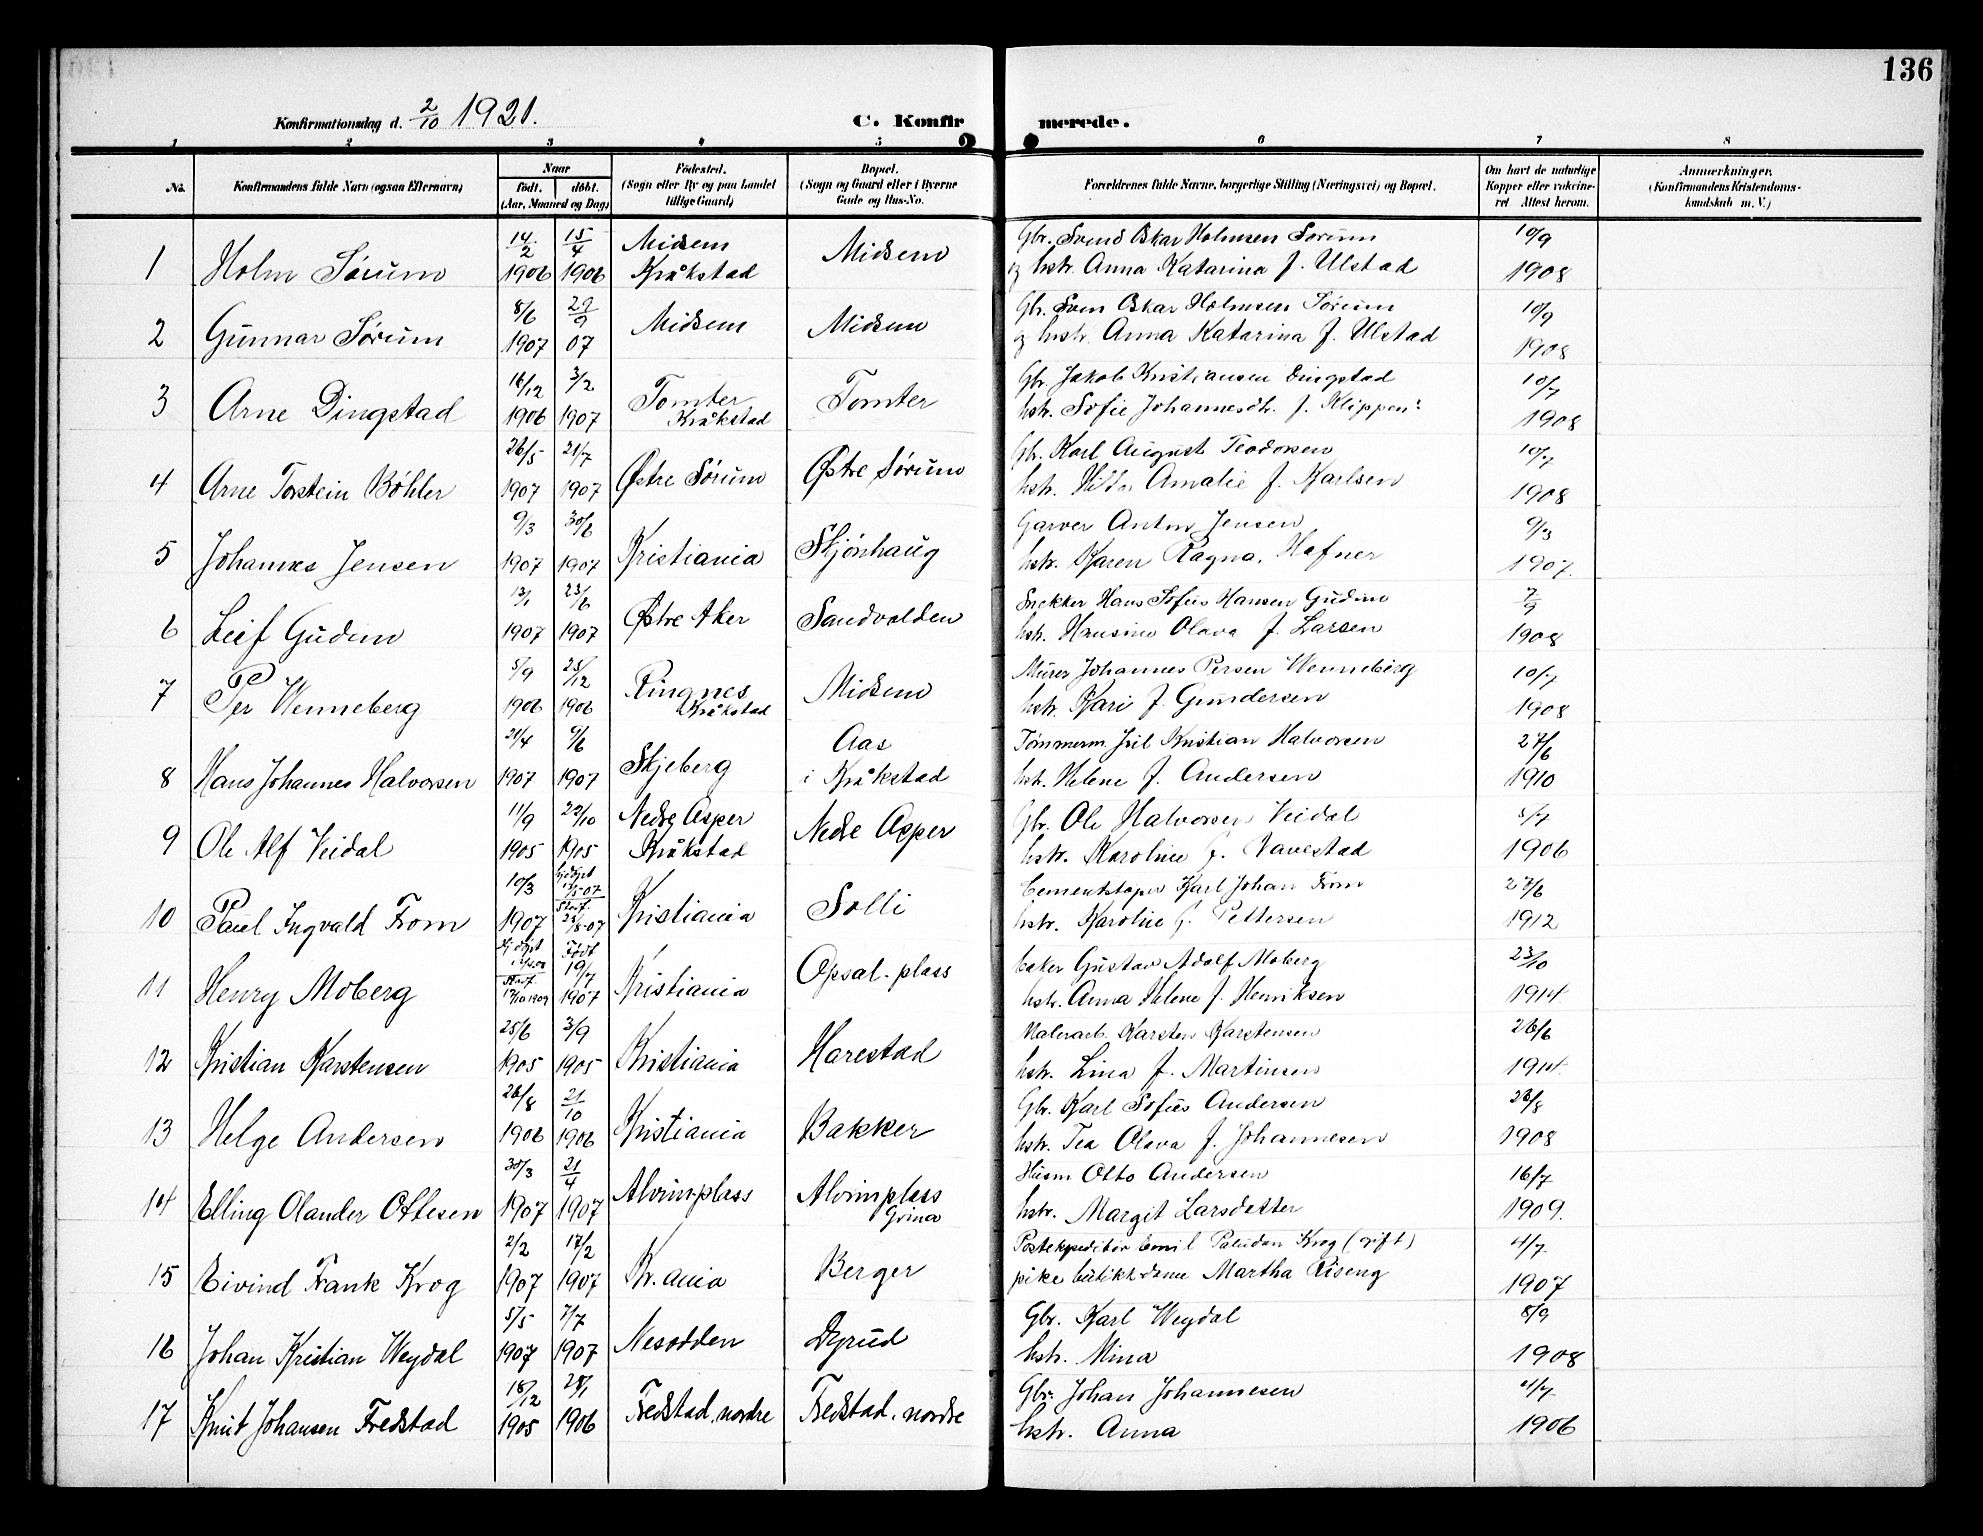 136
Konfirmationsdag d. 2/10 1921.
C. Konfirmerede.
1 2 3 4 5 6 7 8
No.
Konfirmandens fulde Navn (ogsaa Efternavn)
Naar
født. døbt.
(Aar, Maaned og Dag)
Fødested.
(Sogn eller By og paa Landet
tillige Gaard)
Bopæl.
(Sogn og Gaard eller i Byerne
Gade og Hus-No.
Forældrenes fulde Navne, borgerlige Stilling (Næringsvei) og Bopæl.
Om havt de naturlige
Kopper eller vakcine-
ret Attest herom.
Anmærkninger,
(Konfirmandens Kristendoms-
kundskab m. V.)
14/2 15/4 Midsem Gbr. Svend Oskar Holmsen Sørum 10/9
1 Holm Sørum 1906 1906 Kråkstad Midsem og hstr. Anna Katarina f. Ulstad 1908
8/6 29/9 Gbr. Sven Oskar Holmsen Sørum 10/9
2 Gunnar Sørum 1907 07 Midsem Midsem og hstr. Anna Katarina f. Ulstad 1908
16/12 3/2 Tomter Gbr. Jakob Kristiansen Dingstad 10/7
3 Arne Dingstad 1906 1907 Kråkstad Tomter hstr. Sofie Johannesdtr. f. Klippen 1908
26/5 21/7 Gbr. Karl August Teodorsen 10/7
4 Arne Torstein Bøhler 1907 1907 Østre Sørum Østre Sørum hstr. Amalie f. Karlsen 1908
9/3 30/6 Garver Anton Jensen 9/3
5 Johannes Jensen 1907 1907 Kristiania Skjønhaug hstr. Karen Ragna. Hafner 1907.
13/1 23/6 Snekker Hans Sofus Hansen Gudim 7/9
6 Leif Gudim 1907 1907 Østre Aker Sandvolden hstr. Hansine Olava f. Larsen 1908
5/9 25/12 Ringnes Murer Johannes Persen Wenneberg 10/7
7 Per Wenneberg 1906 1906 Kråkstad Midsem hstr. Kari f. Gundersen 1908
21/4 9/6 Aas Tømmerm. Kristian Halvorsen 27/6
8 Hans Johannes Halvorsen 1907 1907 Skjeberg i Kråkstad hstr. Helene f. Andersen 1910
11/9 22/10 Nedre Asper Gbr. Ole Halvorsen Veidal 5/7
9 Ole Alf Veidal 1905 1905 Kråkstad Nedre Asper hstr. Karoline f. Vavestad 1906
10/3 hjdøpt Cementstøper Karl Johan From 27/6
10 Paul Ingvald From 1907 Stadf. 25/8-07 Kristiania Solli hstr. Karoline f. Pettersen 1912
hjdøpt Født 19/7 baker Gustav Adolf Moberg 23/10
11 Henry Moberg Stadf. 1909 1907 Kristiania Opsal-plass hstr. Anna Helene f. Henriksen 1914
25/6 3/9 Malerarb. Karsten Karstensen 26/6
12 Kristian Karstensen 1905 1905 Kristiania Harestad hstr. Lina f. Martinsen 1914.
26/8 21/10 Gbr. Karl Sofus Andersen 28/8
13 Helge Andersen 1906 1906 Kristiania Bakker hstr. Tea Olava f. Johannesen 1908
30/3 21/4 Husm Otto Andersen 16/7
14 Elling Olander Ottesen 1907 1907 Alvimplass Alvimplass hstr. Margit Larsdatter 1909.
Grina
2/2 17/2 Postekspeditør Emil Paludan Krog (gift) 4/7
15 Eivind Frank Krog 1907 1907 Kr.ania Berger pike butikkdame Martha Riseng 1907
5/5 7/7 Gbr. Karl Weydal 8/9
16 Johan Kristian Weydal 1907 1907 Nesodden Dyrud hstr. Mina 1908
18/12 28/1 Gbr. Johan Johannesen 4/7
17 Knut Johansen Fredstad 1905 1906 Fredstad, nordre Fredstad, nordre hstr. Anna 1906